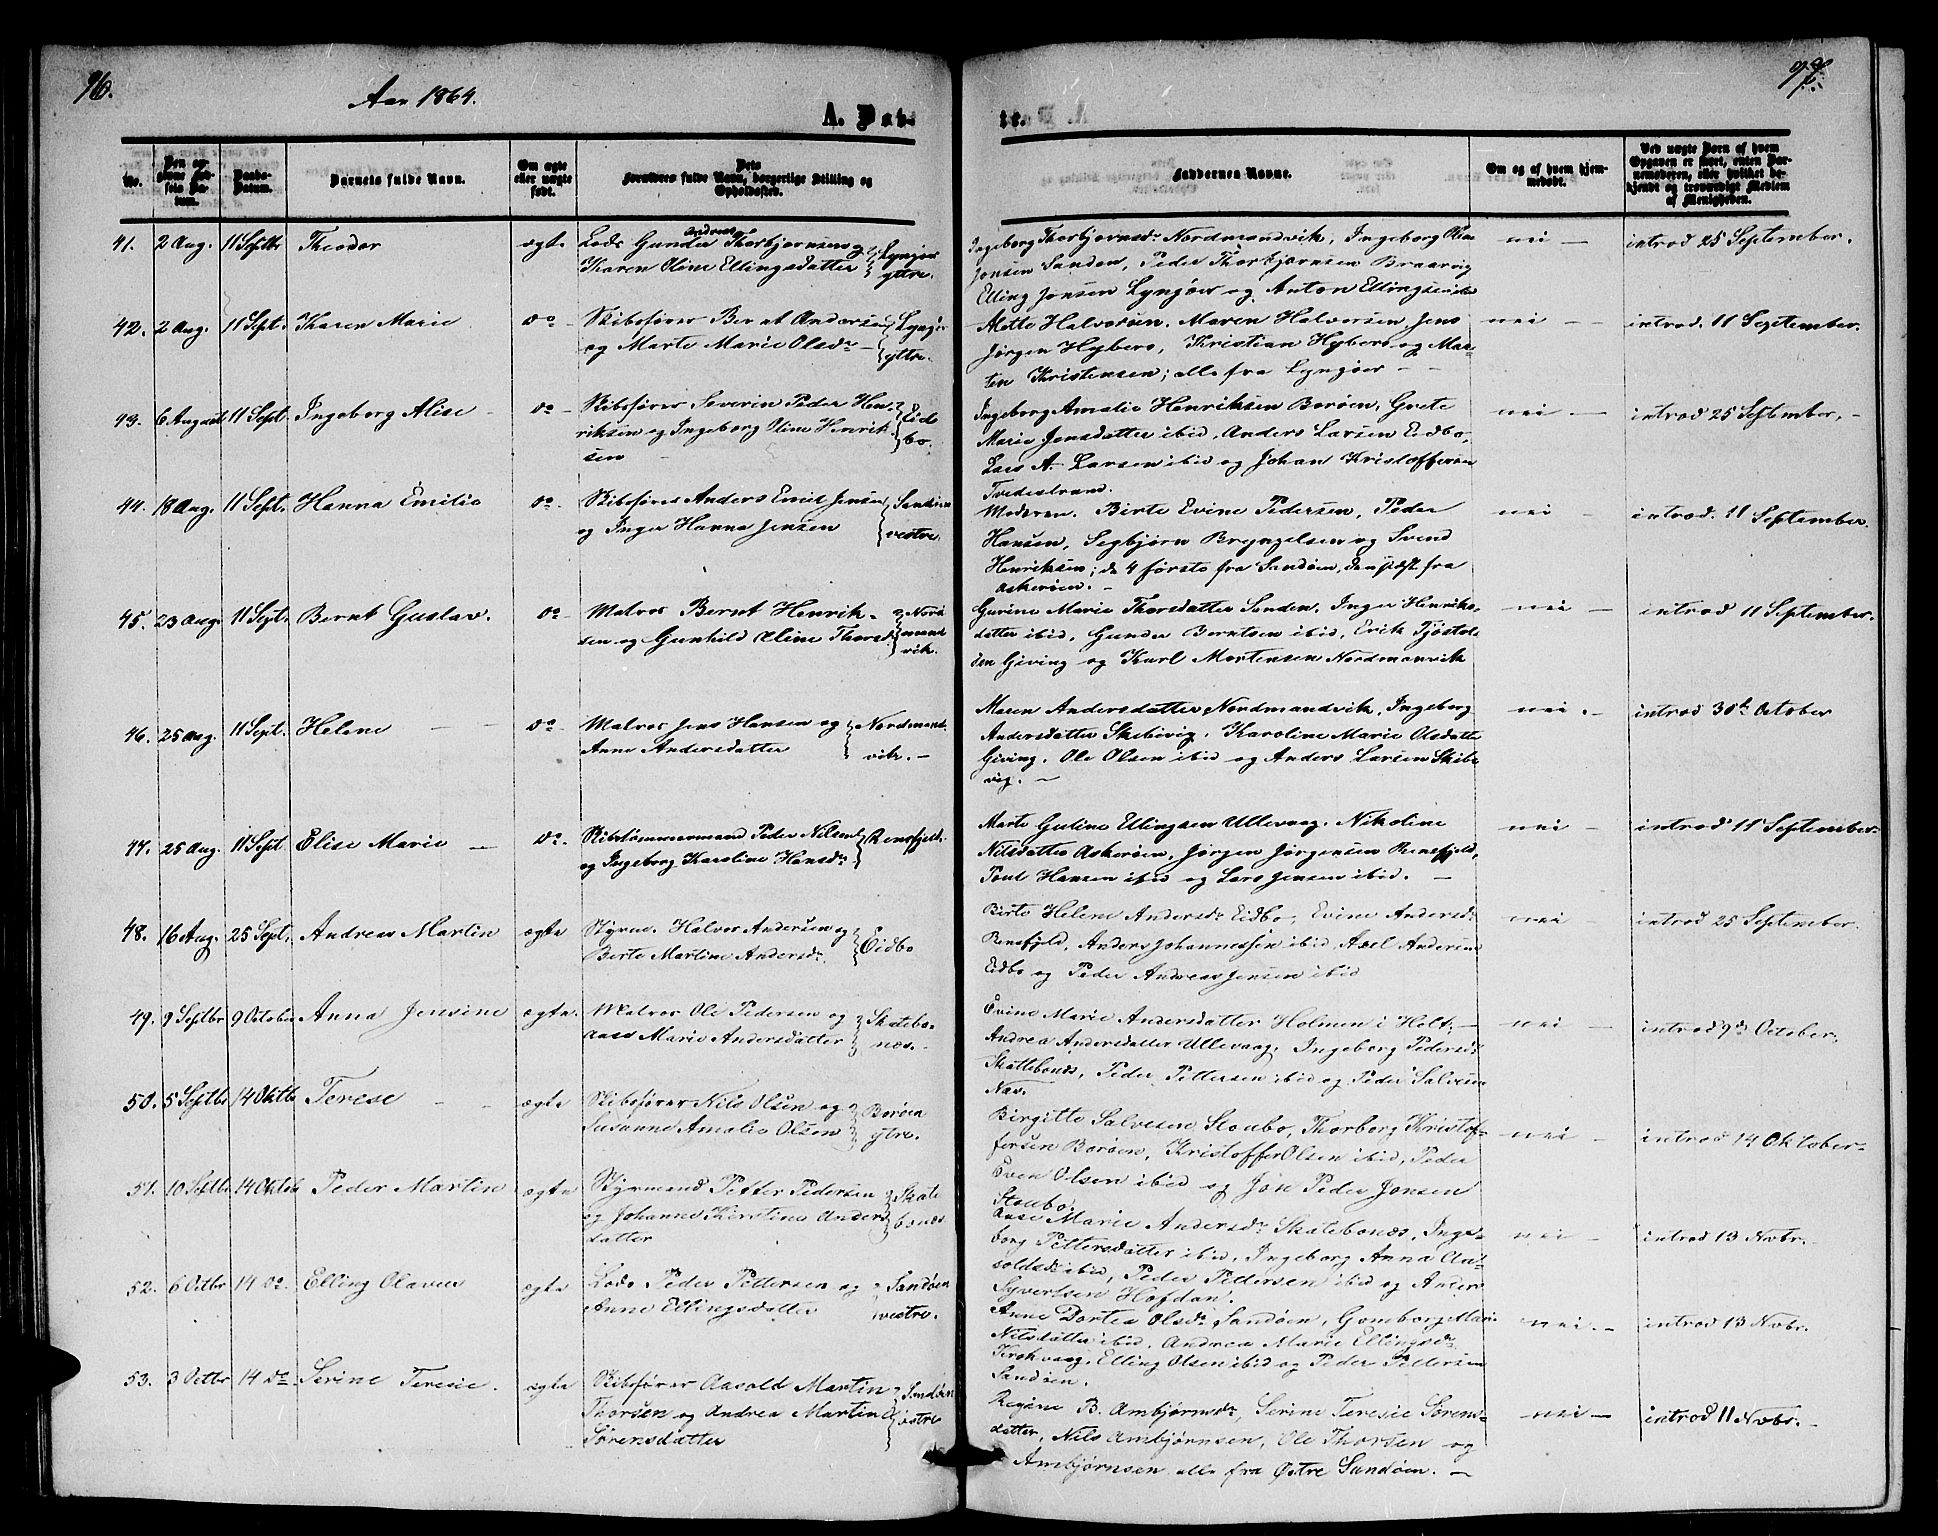 96.
Aar 1864.
A. Døb-
te.
97.
No.
Den op-
givne Fød-
sels Da-
tum.
Daabs-
Datum.
Barnets fulde Navn.
Om ægte
eller uægte
født.
Dets
Forældres fulde Navn, borgerlige Stilling og
Opholdssted.
Faddernes Navne.
Om og af hvem hjem-
medøbt.
Ved uægte Børn af hvem
Opgaven er skeet, enten Bar-
nemoderen, eller hvilket be-
kjendt og troværdigt Medlem
af Menigheden.
41. 2 Aug. 11 Septbr Theodor ægte Lods Gunder Andreas Thorbjørnsens og
Karen Oline Ellingsdatter Lyngør
yttre.
Ingeborg Thorbjørnsdr Nordmandvik, Ingeborg Oline
Jonsen Sanden, Peder Thorbjørnsen Braarvig
Elling Jensen Lyngøer og Anton Ellingsen
nei — introd 25 September.
42. 2 Aug. 11 Sept. Karen Marie do Skibsfører Bernt Andersen
og Marte Marie Olsdr Lyngør
yttre.
Mette Halvorsen. Maren Halvorsen Jens
Jørgen Hybers, Kristian Hybers og Mar-
ten Kristensen; alle fra Lyngøer
nei — introd. 11 September.
43. 6 August 11 Sept. Ingeborg Alise do Skibsfører Severin Peder Hen-
riksen og Ingeborg Oline Henrik-
sen Eid
bo.
Ingeborg Amalie Henriksen Borøen, Grete
Marie Jensdatter ibid, Anders Larsen Eidbo,
Lars A. Larsen ibid og Johan Kristoffersen
Tvedestrand.
nei — introd 25 September.
44. 18 Aug. 11 Sept. Hanna Emilie do Skibsfører Anders Emil Jensen
og Inger Hanna Jensen Sandøen
vestre.
Moderen. Birte Evine Pedersen, Peder
Hansen, Segbjørn Bryngelsen og Svend
Henriksen; de 4 første fra Sandøen, den sidst fra
Askerøen.
nei — introd. 11 September.
45. 23 Aug. 11 Sept. Bernt Gustav. do Matros Bernt Henrik-
sen og Gunhild Aline Thorsd. Nord
mand
vik.
Gurine Marie Thorsdatter Sanden. Inger Henriks-
datter ibid, Gunder Berntsen ibid, Erik Tjøstol-
sen Giving og Karl Mortensen Nordmanvik
nei — introd 11 September.
46. 25 Aug. 11 Sept. Helene do Matros Jens Hansen og
Anne Andersdatter Nordmand-
vik. —
Maren Andersdatter Nordmandvik, Ingeborg
Andersdatter Skibvig, Karoline Marie Olsdatter
Giving. Ole Olsen ibid og Anders Larsen Skib-
vig. —
nei. — introd 30te October
47. 25 Aug. 11 Sept Elise Marie do. Skibstømmermand Peder Nilsen
og Ingeborg Karoline Hansdr. Rensfjeld.
Marte Guline Ellingsen Ullevaag. Nikoline
Nilsdatter Askerøen, Jørgen Jørgensen Rensfjeld,
Poul Hansen ibid og Lars Jensen ibid. —
nei — introd 11 September.
48. 16 Aug. 25 Sept. Andreas Martin ægte Styrm. Halvor Andersen og
Berte Martine Andersdr. Eidbo
Birte Helene Andersdr Eidbo, Evine Andersdr
Rensfjeld, Anders Johannessen ibid, Axel Andersen
Eidbo og Peder Andreas Jensen ibid
nei — introd 25 September.
49. 9 Septbr 9 October Anna Jensine ægte. Matros Ole Pedersen og
Aase Marie Andersdatter Skatebo-
nes.
Evine Marie Andersdatter Holmen i Holt. —
Andrea Andersdatter Ullevaag, Ingeborg Pedersdr
Skattebonæs, Peder Pettersen ibid og Peder Salvesen
Næs.
nei — introd 9de October.
50. 5 Septbr 14 Oktbr Terese ægte Skibsfører Nils Olsen og
Susanne Amalie Olsen Borøen
ytre.
Birgitte Salvesen Stoubo, Thorborg Kristof-
fersen Borøen, Kristoffer Olsen ibid, Peder
Even Olsen ibid og Jøn Peder Jonsen
Stoubo.
nei — introd 14 Oktober —
51. 10 Septbr 14 Oktbr Peder Martin ægte Styrmand Petter Pedersen
og Johanne Kirstine Anders
datter Skate
bonæs
Aase Marie Andersdr. Skatebonæs, Inge-
borg Pettersdatter ibid, Ingeborg Anna Aa-
soldsdr ibid, Peder Pettersen ibid og Anders
Syvertsen Hofdan.
nei — introd 13 Novbr.
52. 6 Octbr 14 do. Elling Olaves ægte Lods Peder Pettersen og
Anne Ellingsdatter Sandøen
vestre.
Anne Dortea Olsdr Sandøen, Gomborg Mari
Nilsdatter ibid, Andrea Marie Ellingsdr
Kirkvaag, Elling Olsen ibid og Peder Pettersen
Sandøen.
nei. — introd 13 Novbr.
53. 3 Octbr 14 do. Serine Teresie. ægte Skibsfører Aasold Martin
Thorsen og Andrea Martine
Sørensdatter Sandøen
østre
Regine B. Ambjørnsdr, Serine Teresie Sørens-
datter, Nils Ambjørnsen, Ole Thorsen og
Ambjørnsen alle fra Østre Sandøen. —
nei — introd 11 Novbr. —